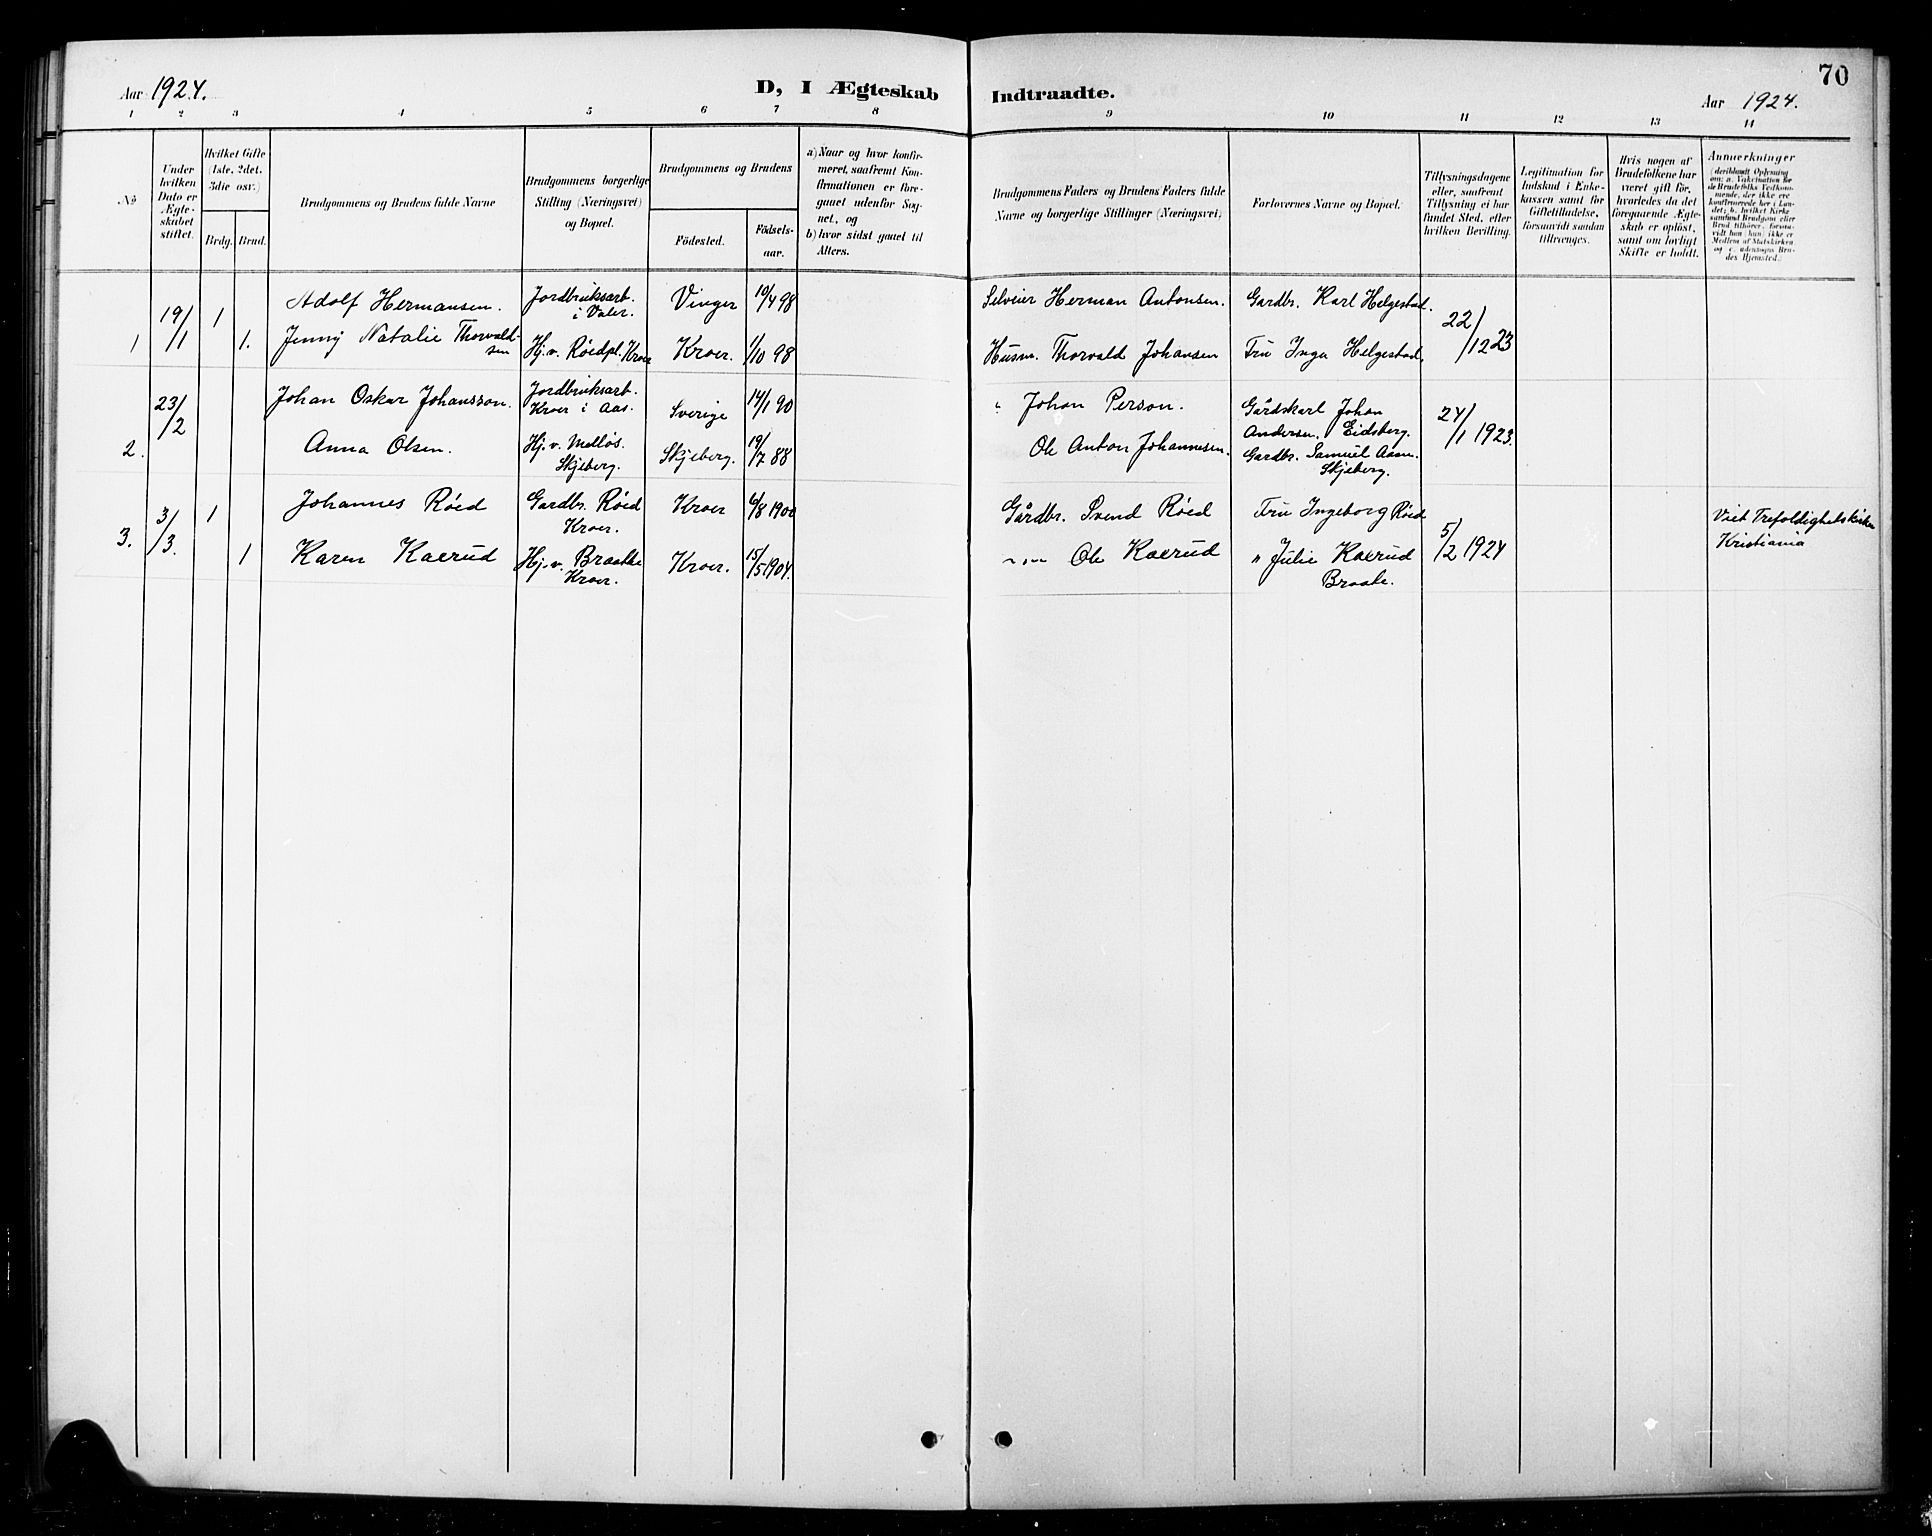 70
Aar 1924.
D, I Ægteskab Indtraadte.
Aar 1924.
1 2 3 4 5 6 7 8 9 10 11 12 13 14
№
Under hvilken Dato er Ægteskabet stiftet.
Hvilket Gifte (1ste, 2det, 3die osv.)
Brdg. Brud.
Brudgommens og Brudens fulde Navne
Brudgommens borgerlige Stilling (Næringsvei) og Bopæl.
Brudgommens og Brudens
Födested.
Födselsaar.
a) Naar og hvor konfirmeret, saafremt Konfirmationen er foregaaet udenfor Sognet, og
b) hvor sidst gaaet til Alters.
Brudgommens Faders og Brudens Faders fulde Navne og borgerlige Stillinger (Næringsvei)
Forlovernes Navne og Bopæl.
Tillysningsdagene eller, saafremt Tillysning ei har fundet Sted, efter hvilken Bevilling.
Legitimation for Indskud i Enkekassen samt for Giftetilladelse, forsaavidt saadan tiltrænges.
Hvis nogen af Brudefolkene har været gift før, hvorledes da det foregaaende Ægteskab er oplöst, samt om lovligt Skifte er holdt.
Anmærkninger
1 19/1 1 Adolf Hermansen. Jordbruksarb. i Valer. Vinger 10/4 98 Selveier Herman Antonsen. Gardbr. Karl Helgestad. 22/12 23
1. Jenny Natalie Thorvaldsen Hj. v. Røedpl. Kroer Kroer. 1/10 98 Husm. Thorvald Johansen Fru Inga Helgestad
2. 23/2 Johan Oskar Johansson. Jordbruksarb. Kroer i Aas. Sverige 14/1 90 " Johan Person. Gårdskarl Johan Andersen, Eidsberg. 24/1 1923.
Anna Olsen. Hj. v. Melløs. Skjeberg. Skjeberg. 19/7 88 Ole Anton Johannesen. Gardbr. Samuel Aasn. Skjeberg.
3. 3/3. 1 Johannes Røed Gardbr. Røed Kroer. Kroer 6/8 1900 Gårdbr. Svend Røed Fru Ingeborg Røed 5/2 1924 Viet Trefoldighetskirken Kristiania
1 Karen Kaerud Hj. v. Braatke Kroer. Kroer. 15/5 1904. " " Ole Kaerud " Julie Kaerud Braate.